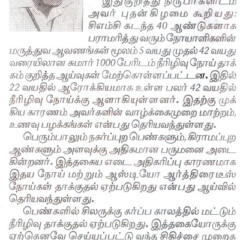 இதுகுறித்து நிருபர்களிடம்
அவர் புதன்கிழமை கூறியது:
கடந்த 40 ஆண்டுகளாக
பராமரித்து வரும் நோயாளிகளின்
மருத்துவ ஆவணங்கள் மூலம் 5 வயது முதல் 42 வயது
வரையிலான சுமார் 1000 பேரிடம் நீரிழிவு நோய் தாக்
கம் குறித்த ஆய்வுகள் மேற்கொள்ளப்பட்டன. இதில்
22 வயதில் ஆரோக்கியமாக உள்ள பலர் 42 வயதில்
நீரிழிவு நோய்க்கு ஆளாகியுள்ளனர். இதற்கு முக்
கிய காரணம் அவர்களின் வாழ்க்கைமுறை மாற்றம்,
உணவு பழக்கங்கள் என்பது தெரியவந்துள்ளது.
பெரும்பாலும் நகர்ப்புற பெண்கள், கிராமப்புற
ஆண்களும் அளவுக்கு அதிகமான பருமனை அடை
கின்றனர். இத்தகைய எடை அதிகரிப்பு காரணமாக
இதய நோய் மற்றும் ஆஸ்டியோ ஆர்த்திரைடீஸ்
நோய்கள் தாக்குதல் ஏற்படுகிறது என்பது ஆய்வில்
தெரியவந்துள்ளது.
பெண்களில் சிலருக்கு கர்ப்ப காலத்தில் மட்டும்
நீரிழிவு நோய் தாக்குதல் ஏற்படுகிறது. இத்தகையோருக்கு
ஏற்கெனவே செய்யப்பட்டு வந்த சிகிச்சை முறை